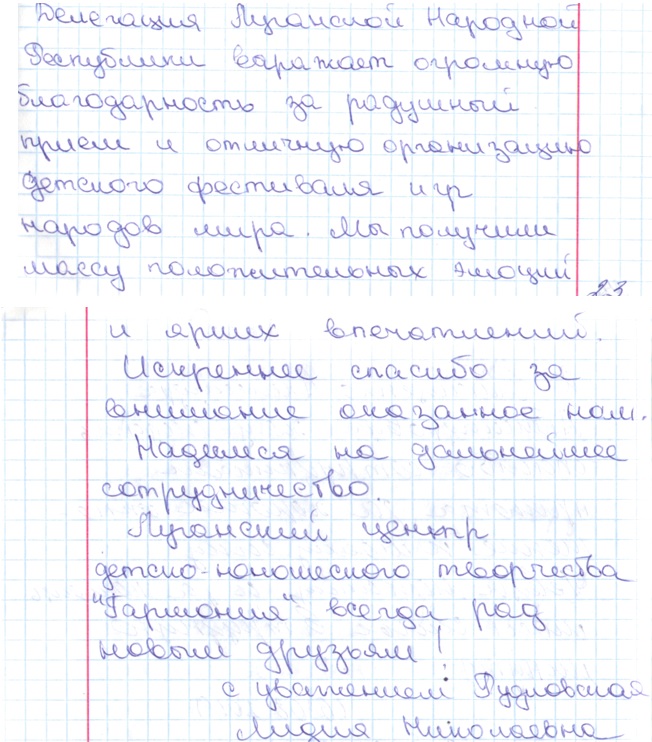 Делегация Луганской Народной
Республики выражает огромную
благодарность за радушный
прием и отличную организацию
детского фестиваля игр
народов мира. Мы получили
массу положительных эмоций
23
и ярких впечатлений.
Искреннее спасибо за
внимание оказанное нам.
Надеемся на дальнейшее
сотрудничество.
Луганский центр
детско-юношеского творчества
"Гармония" всегда рад
новым друзьям!
с уважением Рудковская
Лидия Николаевна